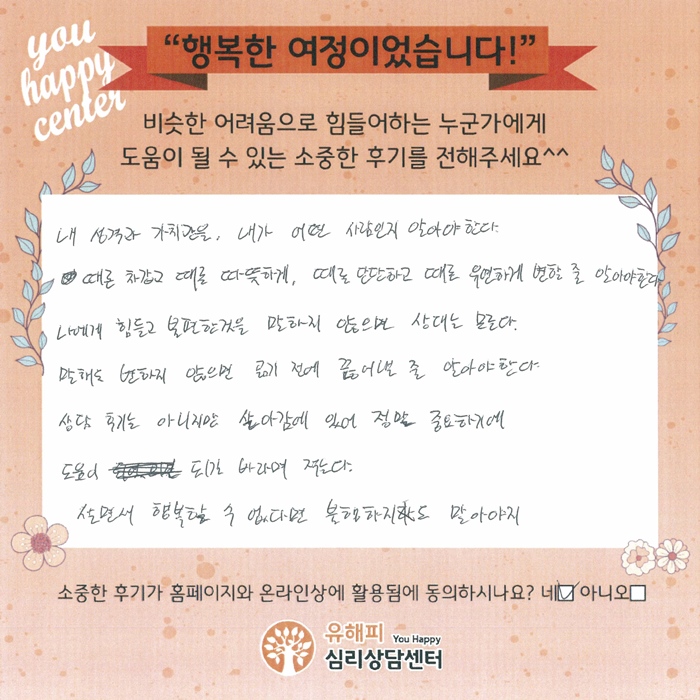 you
happy
center
“행복한 여정이었습니다!”
비슷한 어려움으로 힘들어하는 누군가에게
도움이 될 수 있는 소중한 후기를 전해주세요^^
내 성격과 가치관을, 내가 어떤 사람인지 알아야한다.
때론 차갑고 때로 따뜻하게, 때로 단단하고 때로 유연하게 변할 줄 알아야한다
나에게 힘들고 불편한것을 말하지 않으면 상대는 모른다.
말해도 변하지 않으면 곪기 전에 끊어낼 줄 알아야한다.
상담 후기는 아니지만 살아감에 있어 정말 중요하기에
도움이 되기를 바라며 적는다.
살면서 행복할 수 없다면 불행하지도 말아야지
소중한 후기가 홈페이지와 온라인상에 활용됨에 동의하시나요? 네 아니오
유해피 You Happy
심리상담센터